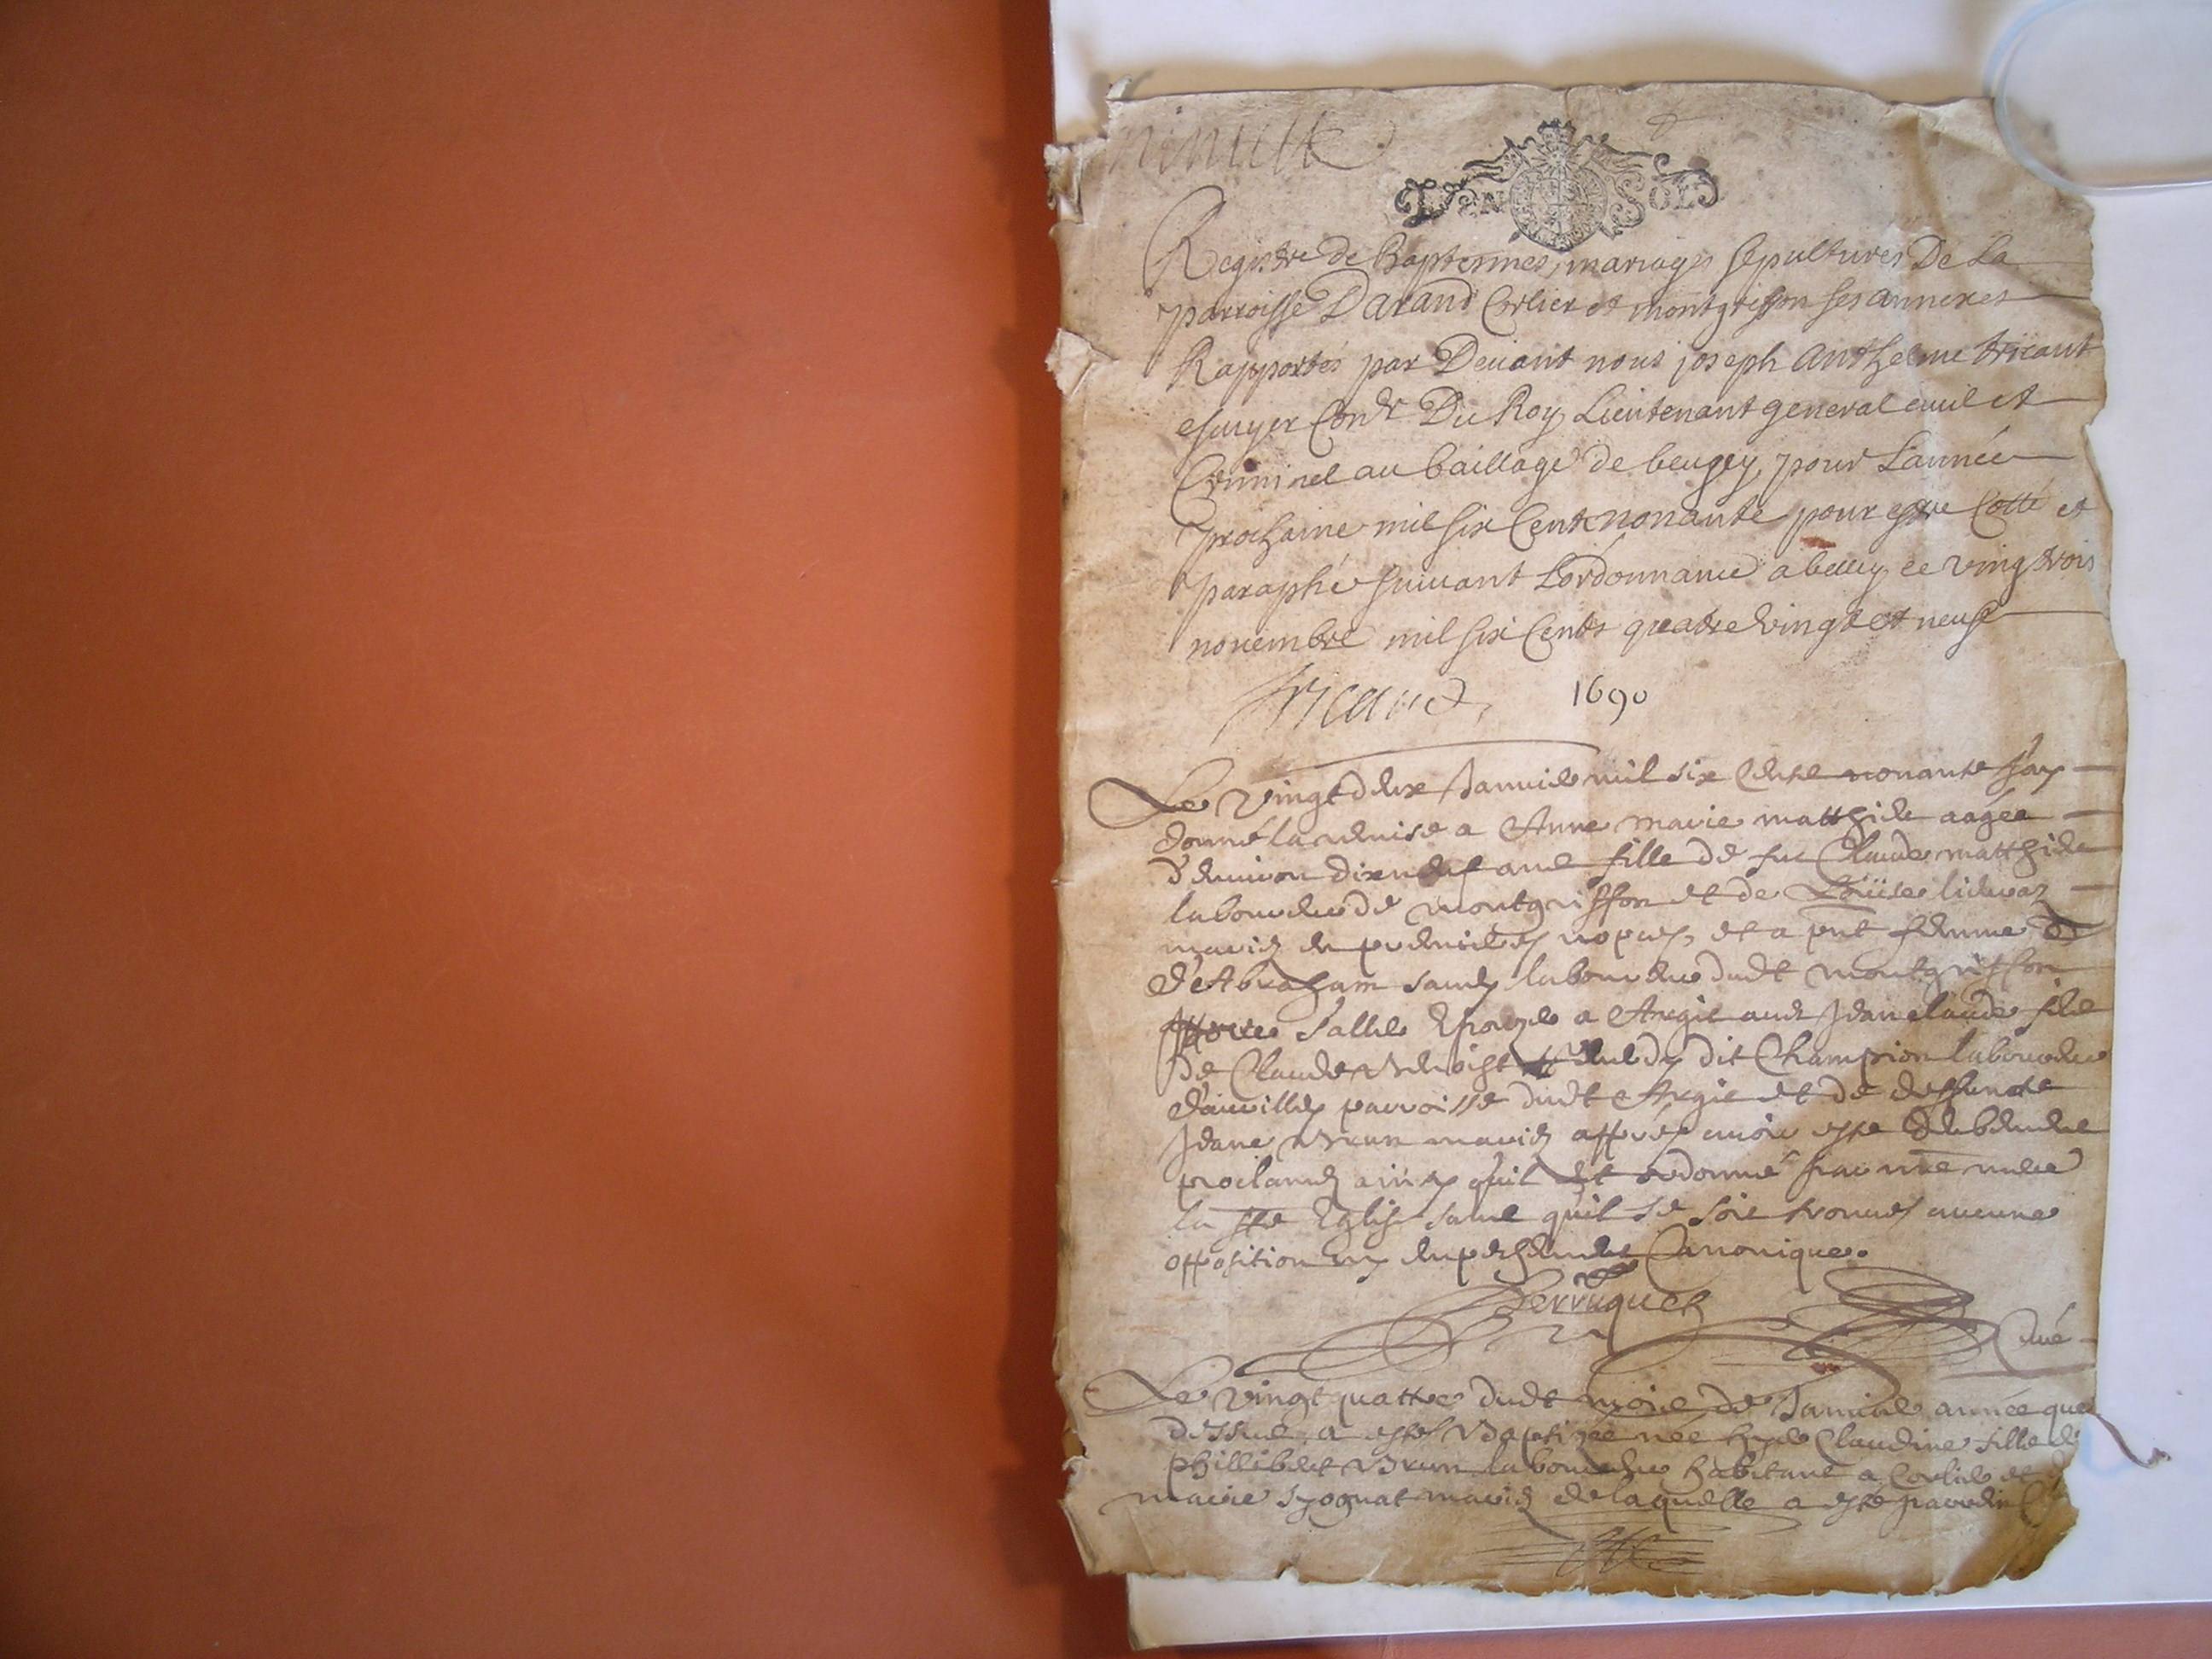 minutte
VN SOLS
Registre de Baptesmes, mariages sepultures De La
parroisse Darand Corlier et montgriffon ses annexes
Rapportés par Deuant nous joseph anthelme tricaut
escuyer Con.r Du Roy Lieutenant general ciuil et
Criminel au bailliage de beugey, pour L'année
prochaine mil six Cent nonante pour estre Cotté et
paraphé suiuant L'ordonnance a belley ce vingt trois
nouembre mil six Cents quatre vingt et neuf
Tricaud
1690
Le vingt deux Januier mil six Cents nonante J'ay
donné la remise a Anne marie matthieu aagée
d'enuiron dixneuf ans fille de feu Claude matthieu
laboureur de montgriffon et de Loüise
mariés en premieres nopces, et a pnt femme
d'Abraham laboureur dudt montgriffon
s'aller Epouzer a Argis auec Jean claude fils
de Claude Benoist dit Champion laboureur
parroisse dudt Argis et de deffuncte
Jeane Brun mariés appres auoir esté
proclamés ainsy quil est ordonné par nre mere
la ste Eglise sans quil se soit trouué aucune
opposition ny empeschement Canonique.
Perruquet
Curé
Le vingt quattre dudt mois de Januier année que
dessus a esté Baptizée née hyer Claudine fille de
Phillibert Brun laboureur habitant a Corlier et de
marie mariés de laquelle a esté parrein